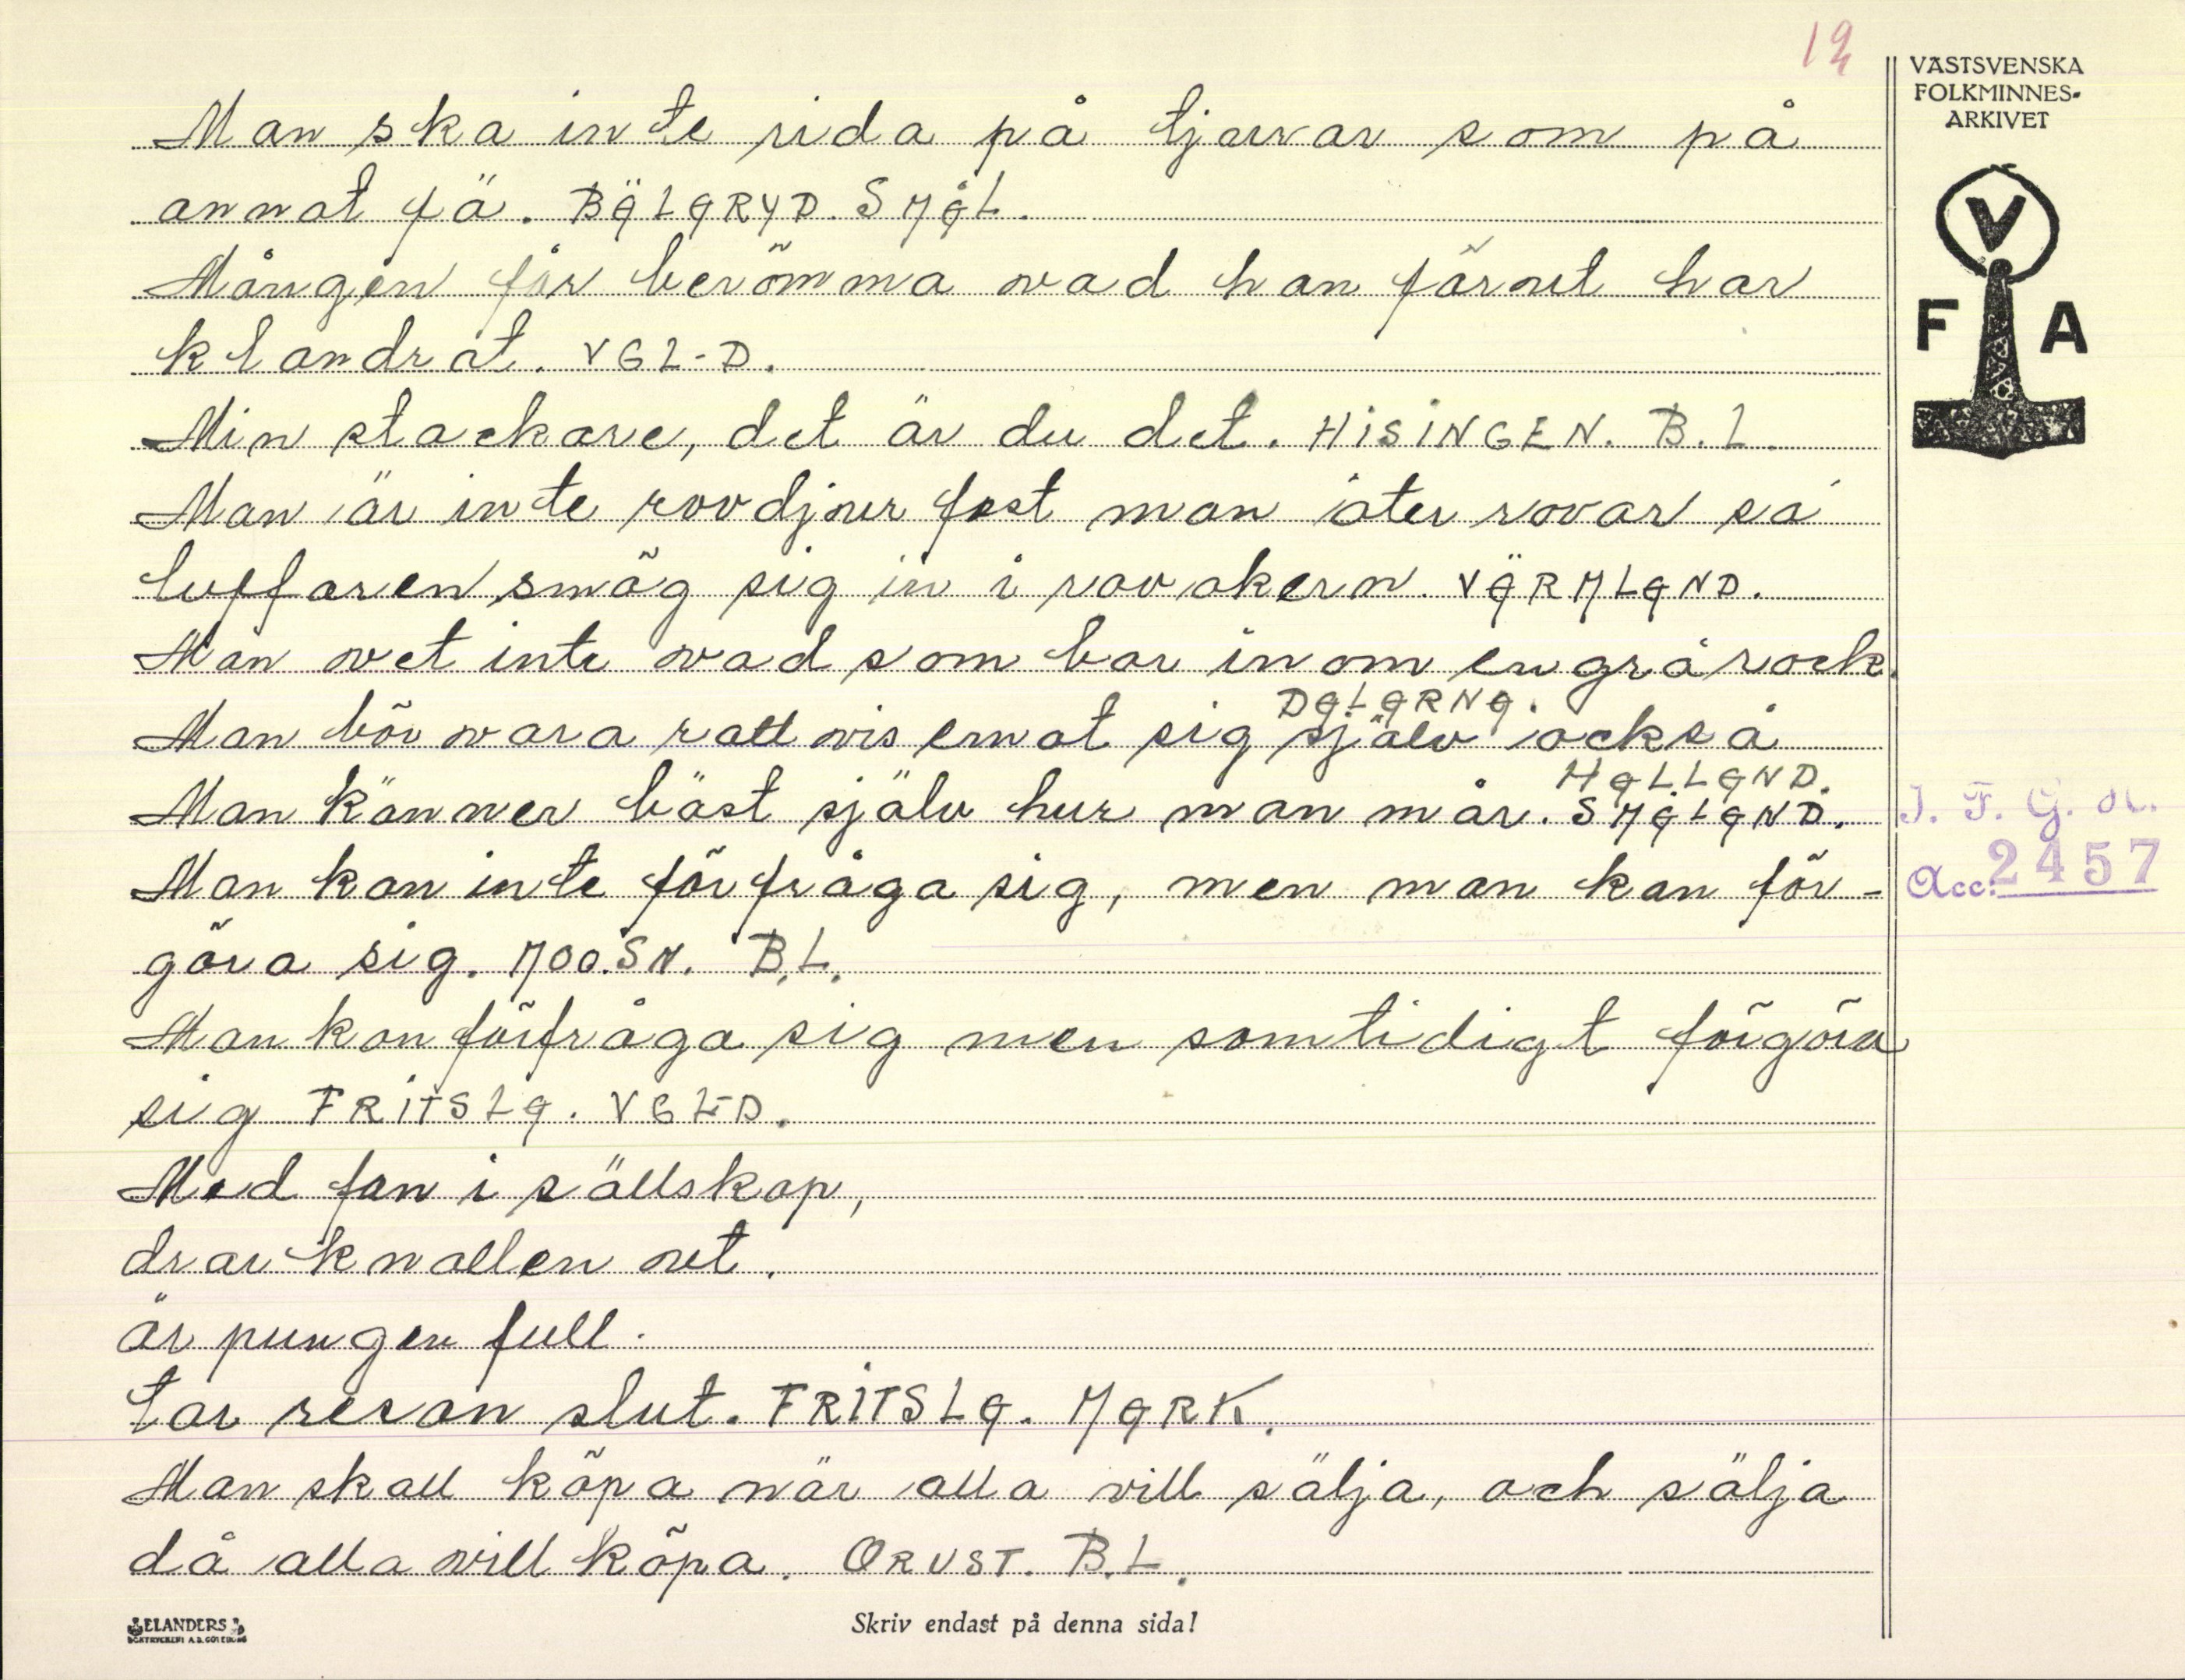 12
VÄSTSVENSKA
FOLKMINNES-
ARKIVET
V
F A
Man ska inte rida på tjurar som på
annat fä. BÄLARYD. SMÅL.
Mången får berömma vad han förut har
klandrat. VGL-D.
Min stackare, det är du det. HISINGEN. B.L.
Man är inte rovdjur fast man äter rovar sa
luffaren smög sig in i rovakern. VÄRMLAND.
Man vet inte vad som bor inom en grå rock.
DALARNA.
Man bör vara rattvis emot sig själv också
HALLAND.
Man känner bäst själv hur man mår. SMÅLAND.
Man kan inte förfråga sig, men man kan för-
göra sig. MOO.SN. B.L.
Man kan förfråga sig men somtidigt förgöra
sig FRITSLA. VGL-D.
Med fan i sällskap,
drar knallen ut.
är pungen full.
tar resan slut. FRITSLA. MARK.
Man skall köpa när alla vill sälja, och sälja
då alla vill köpa. ORUST. B.L.
I. F. G. H.
Acc: 2457
ELANDERS
BOKTRYCKERI A.B. GÖTEBORG
Skriv endast på denna sida!